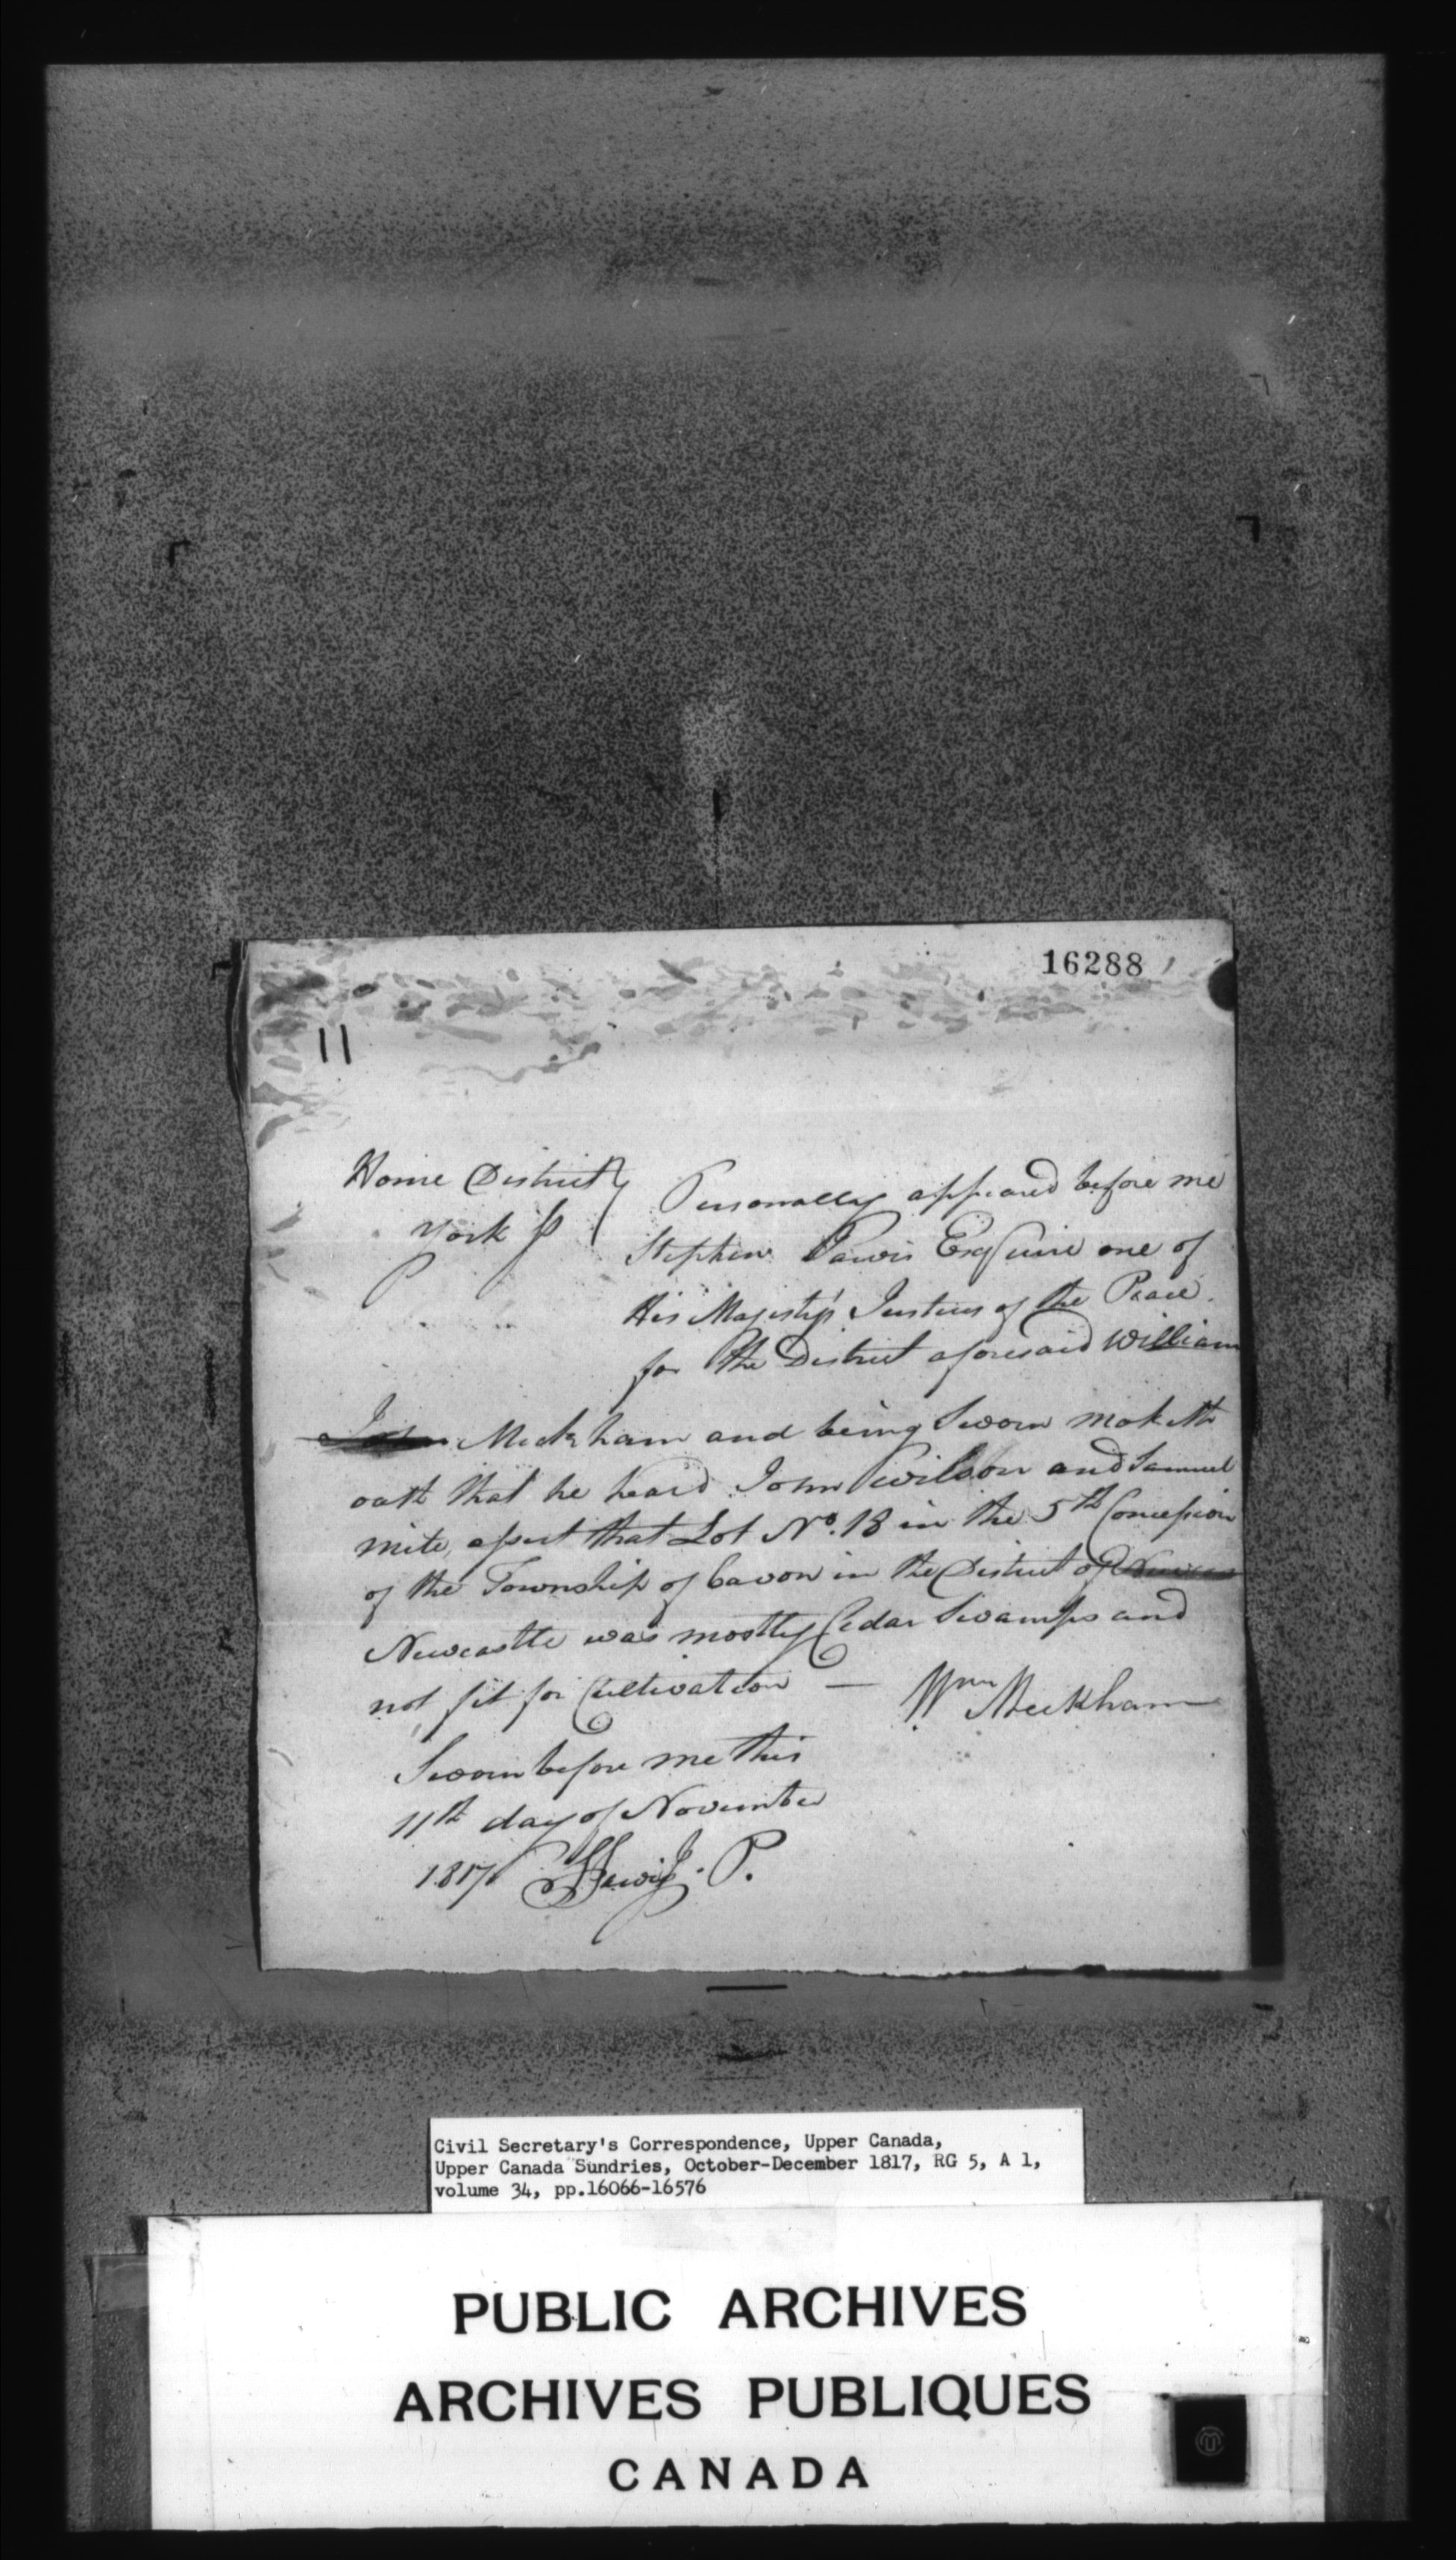 16288
11
Home District
York Ss
Personally appeared before me
Stephen Jarvis Esquire one of
His Majesty's Justices of the Peace
for the District aforesaid William
John Meckham and being Sworn maketh
oath that he heard John Wilson and Samuel
mite, assert that Lot No. 18 in the 5th Concession
of the Township of Cavon in the District of
Newcastle was mostly Cedar Swamps and
not fit for Cultivation —
Wm Meekham
Sworn before me this
11th day of November
1817 SJarvis J. P.
Civil Secretary's Correspondence, Upper Canada,
Upper Canada Sundries, October-December 1817, RG 5, A 1,
volume 34, pp.16066-16576
PUBLIC ARCHIVES
ARCHIVES PUBLIQUES
CANADA